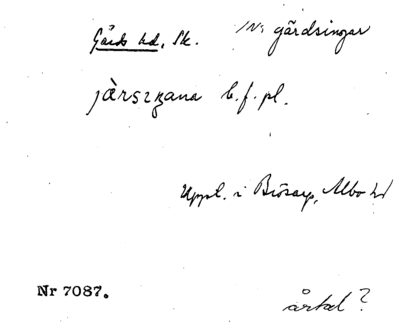 Gärds hd, Sk. IN: gärdsingar
jàrsiŋana b. f. pl.
Uppt. i Brösarp, Albo hd
Nr 7087.
årtal?